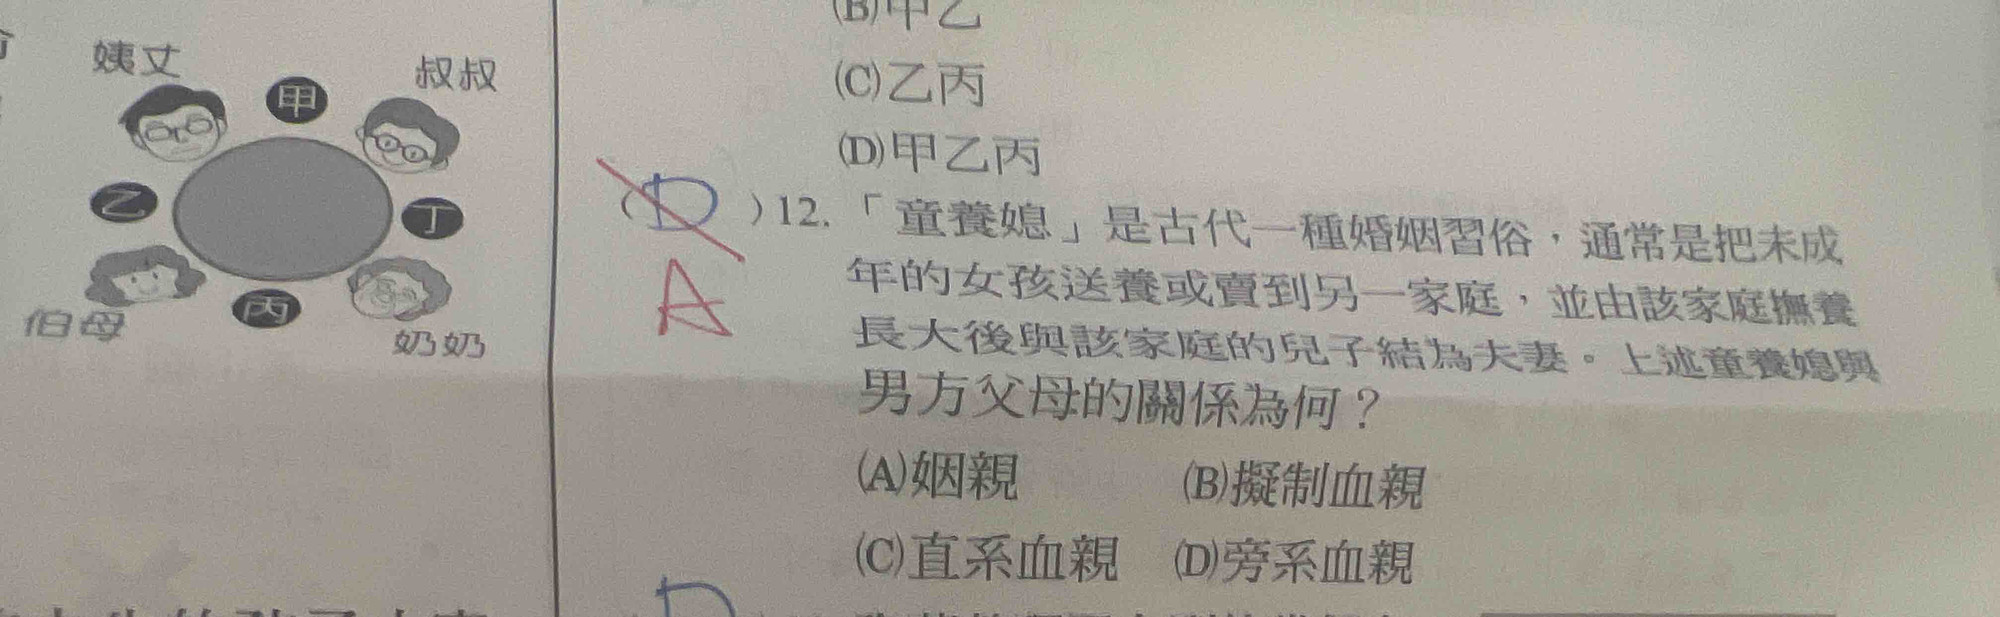 姨丈
叔叔
甲
乙
丁
丙
伯母
奶奶
(B)甲乙
(C)乙丙
(D)甲乙丙
(D)12.「童養媳」是古代一種婚姻習俗，通常是把未成
A
年的女孩送養或賣到另一家庭，並由該家庭撫養
長大後與該家庭的兒子結為夫妻。上述童養媳與
男方父母的關係為何？
(A)姻親 (B)擬制血親
(C)直系血親 (D)旁系血親
D